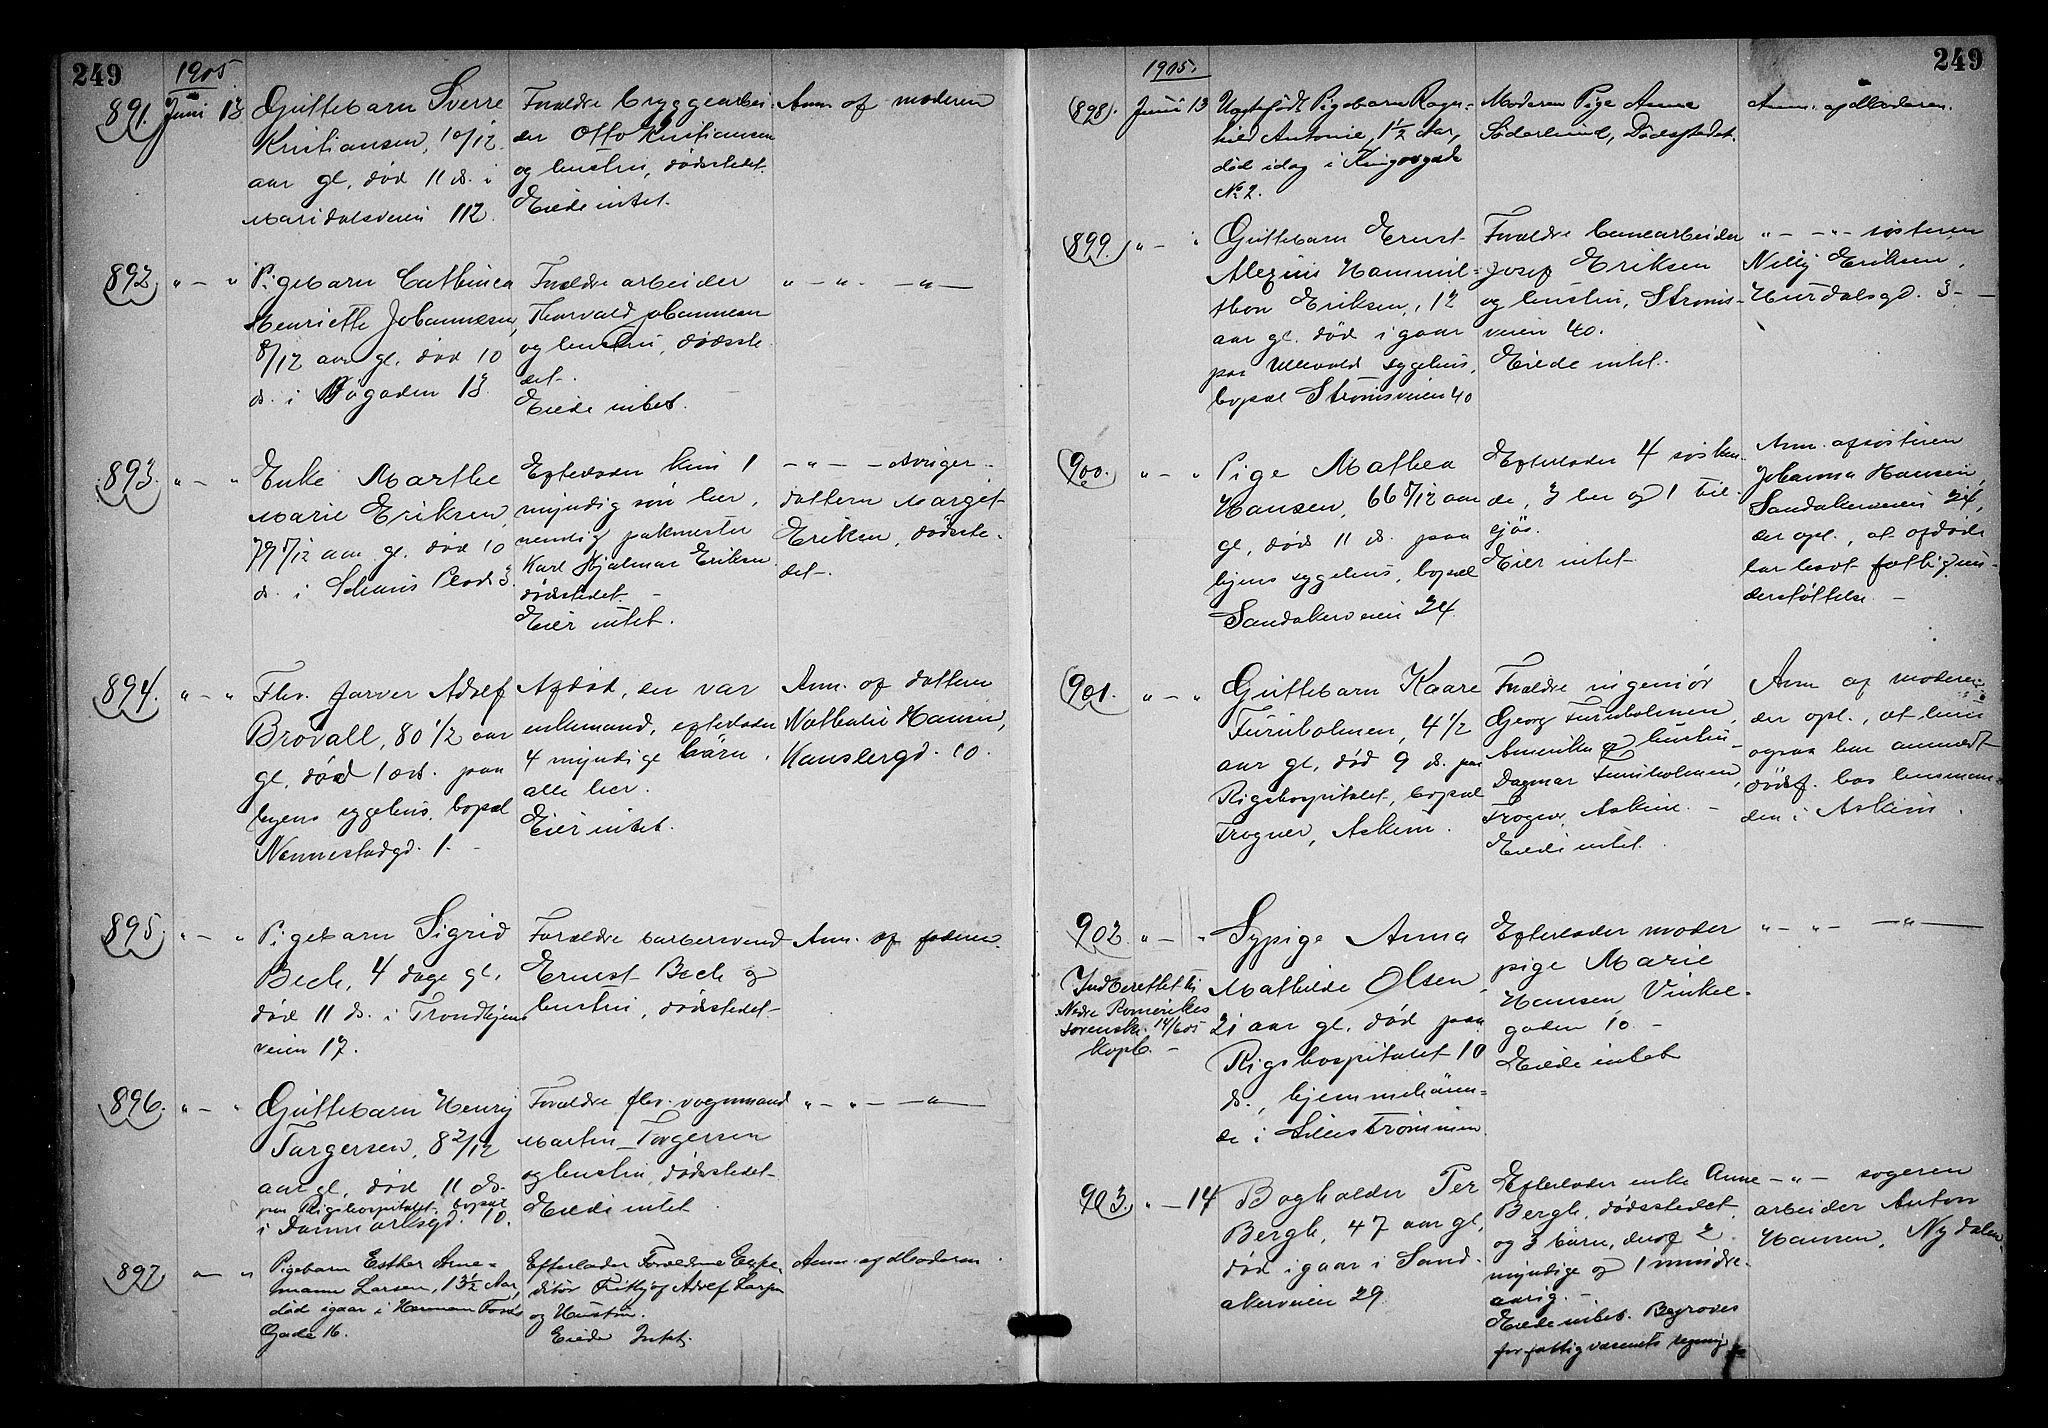 249
1905
891. Juni 13
Guttebarn Sverre
Kristiansen, 10/12
aar gl. død 11 ds. i
Maridalsveien 112.
Forældre bryggearbei-
der Otto Kristiansen
og hustru, dødsstedet.
Eiede intet.
Anm. af moderen
892. " — "
Pigebarn Cathinca
Henriette Johannesen,
8/12 aar gl. død 10
ds. i Bøgaden 13.
Forældre arbeider
Thorvald Johannesen
og hustru, dødsste-
det.
Eiede intet.
" — " — " —
893. " — "
Enke Marthe
Marie Eriksen,
79 5/12 aar gl. død 10
ds. i Schous Plads 3.
Efterlader kun 1
myndig søn her,
nemlig pakmester
Karl Hjalmar Eriksen
dødsstedet. —
Eier intet.
— " — — sviger-
datteren Marget
Eriksen, dødsste-
det.
894. " — "
Flv. farver Adolf
Brovall, 80 1/2 aar
gl. død 10 ds. paa
byens sygehus, bopæl
Nannestadgd. 1. —
Afdød, der var
enkemand, efterlader
4 myndige børn,
alle her.
Eier intet.
Anm. af datteren
Nathalie Hansen,
Hauslergd. 10.
895. " — "
Pigebarn Sigrid
Bech, 4 dage gl.
død 11 ds. i Trondhjems
veien 17.
Forældre barbersvend
Ernest Bech og
hustru, dødsstedet
Anm. af faderen.
896. " — "
Guttebarn Henry
Torgersen, 8 2/12
aar gl. død 11 ds.
paa Rigshospitalet, bopæl
i Danmarksgd. 10.
Forældre flv. vognmand
Martin Torgersen
og hustru, dødsstedet
Eiede intet.
" — " — " —
897 " — "
Pigebarn Esther Arne-
mann Larsen, 13 1/2 Aar,
død igaar i Herman Foss
Gade 16.
Efterlader Forældrene Expe-
ditør Fritjof Adolf Larsen
og Hustru.
Eiede Intet.
Anm. af Moderen.
249
1905.
(898). Juni 13
Uægtefødt Pigebarn Ragn-
hild Antonie, 1 1/2 Aar,
død idag i Kingosgade
No 2.
Moderen Pige Anna
Söderlund, Dødsstedet.
Anm. af Moderen.
899. " — "
Guttebarn Ernst
Alexius Hammil-
thon Eriksen, 12
aar gl. død igaar
paa Ullevold sygehus,
bopæl Strømsveien 40
Forældre banearbeider
Josef Eriksen
og hustru, Strøms-
veien 40.
Eiede intet.
" — — " — søsteren
Nelly Eriksen,
Hurdalsgd. 3. —
900. " — "
Pige Mathea
Hansen, 66 5/12 aar
gl. død 11 ds. paa
byens sygehus, bopæl
Sandakerveien 24
Efterlader 4 søsken-
de, 3 her og 1 til-
sjøs.
Eier intet.
Anm. af søsteren
Johanna Hansen,
Sandakerveien 24,
der opl., at afdøde
har havt fattigun-
derstøttelse. —
901. " — "
Guttebarn Kaare
Furuholmen, 4 1/2
aar gl. død 9 ds. paa
Rigshospitalet, bopæl
Frogner, Askim.
Forældre ingeniør
Georg Furuholmen,
Amerika og hustru
Dagmar Furuholmen,
Frogner, Askim. —
Eiede intet.
Anm. af moderen
der opl., at hun
ogsaa har anmeldt
dødsf. hos lensman-
den i Askim.
902. " — "
Indberettet til
Nedre Romerikes
sorenskr. 14/6 05
kopb. —
Sypige Anna
Mathilde Olsen,
21 aar gl. død paa
Rigshospitalet 10
ds., hjemmehøren-
de i Lillestrømmen.
Efterlader moder
pige Marie
Hansen Vinkel-
gaden 10. —
Eiede intet
" — " — " —
903. " — 14
Bogholder Per
Bergh, 47 aar gl.
død igaar i Sand-
akerveien 29.
Efterlader enke Anne
Bergh, dødsstedet,
og 3 børn, deraf 2
myndige og 1 mindre-
aarig. —
Eiede intet. Begraves
for fattigvæsenets regning
— " — svogeren
arbeider Anton
Hansen, Nydalen.